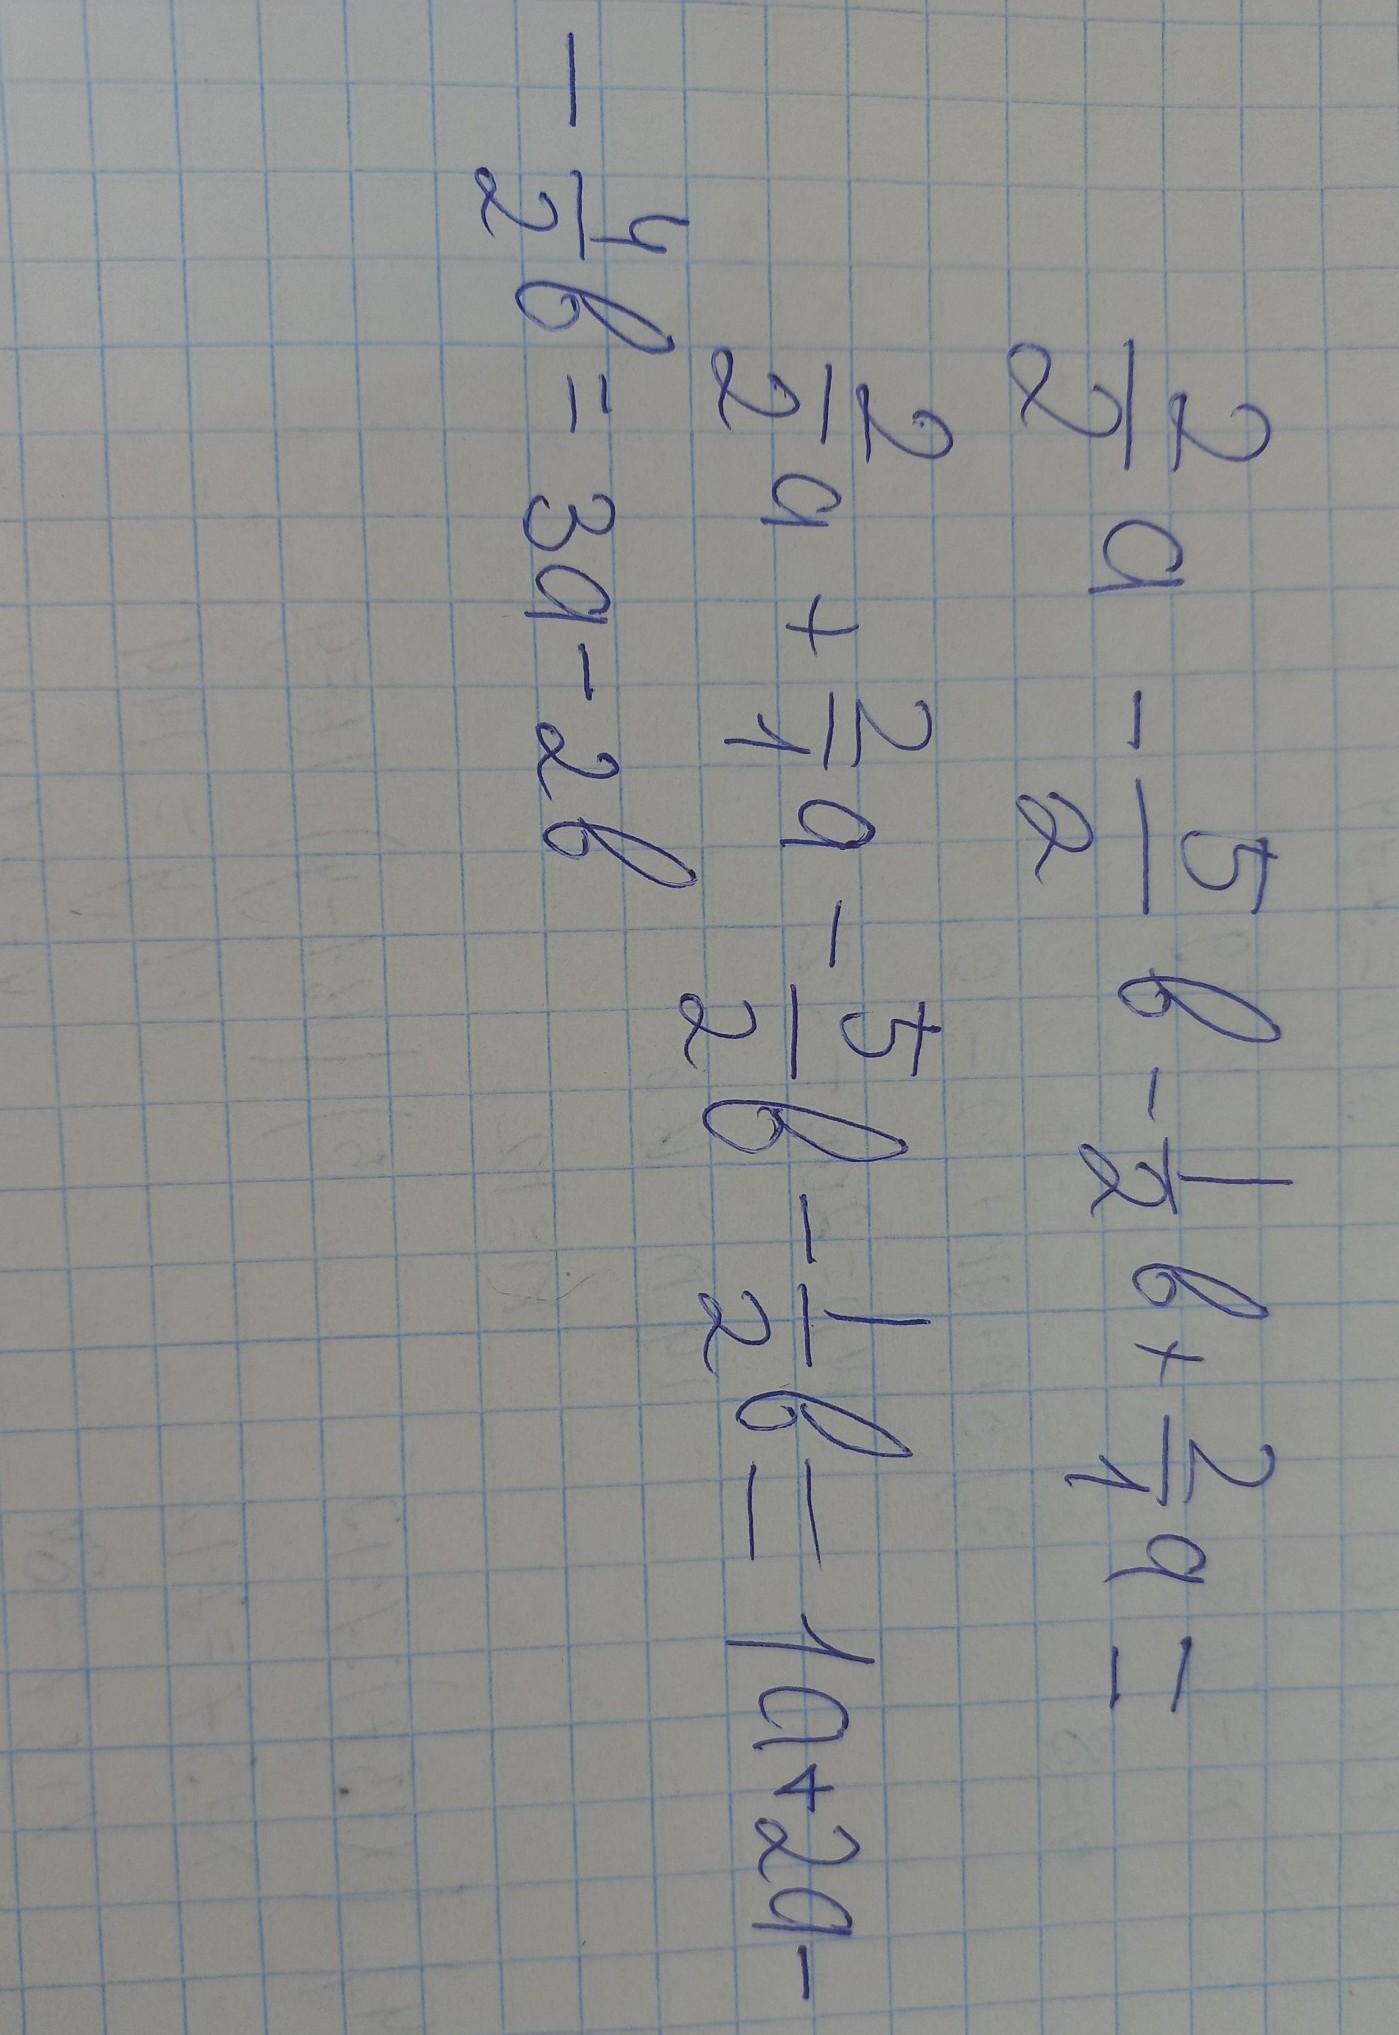 2/2 a - 5/2 в - 1/2 в + 2/1 a =
2/2 a + 2/1 a - 5/2 в - 1/2 в = 1a + 2a -
- 4/2 в = 3a - 2в